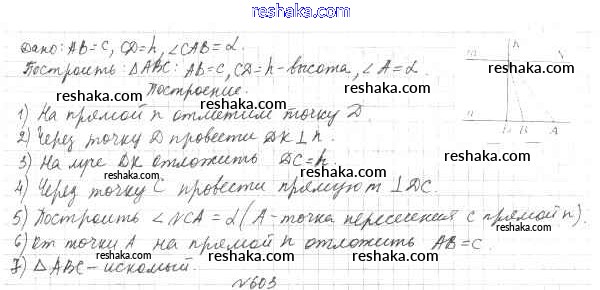 reshaka.com
Дано: AB=c, CD=h, ∠CAB=α.
reshaka.com
Построить: △ABC: AB=c, CD=h-высота, ∠A=α.
reshaka.com
Построение.
reshaka.com
1) На прямой n отметим точку D
reshaka.com
2) Через точку D провести DK⊥n.
reshaka.com
3) На луче DK отложить DC=h.
reshaka.com
4) Через точку C провести прямую m⊥DC.
reshaka.com
5) Построить ∠NCA=α (A-точка пересечения с прямой n).
6) От точки A на прямой n отложить AB=c.
reshaka.com
7) △ABC-искомый.
reshaka.com
№603
K
m
D B A